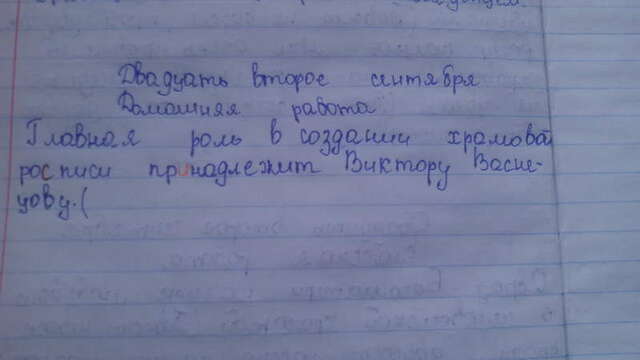 Двадцать второе сентября
Домашняя работа
Главная роль в создании храмовой
росписи принадлежит Виктору Васне-
цову.(